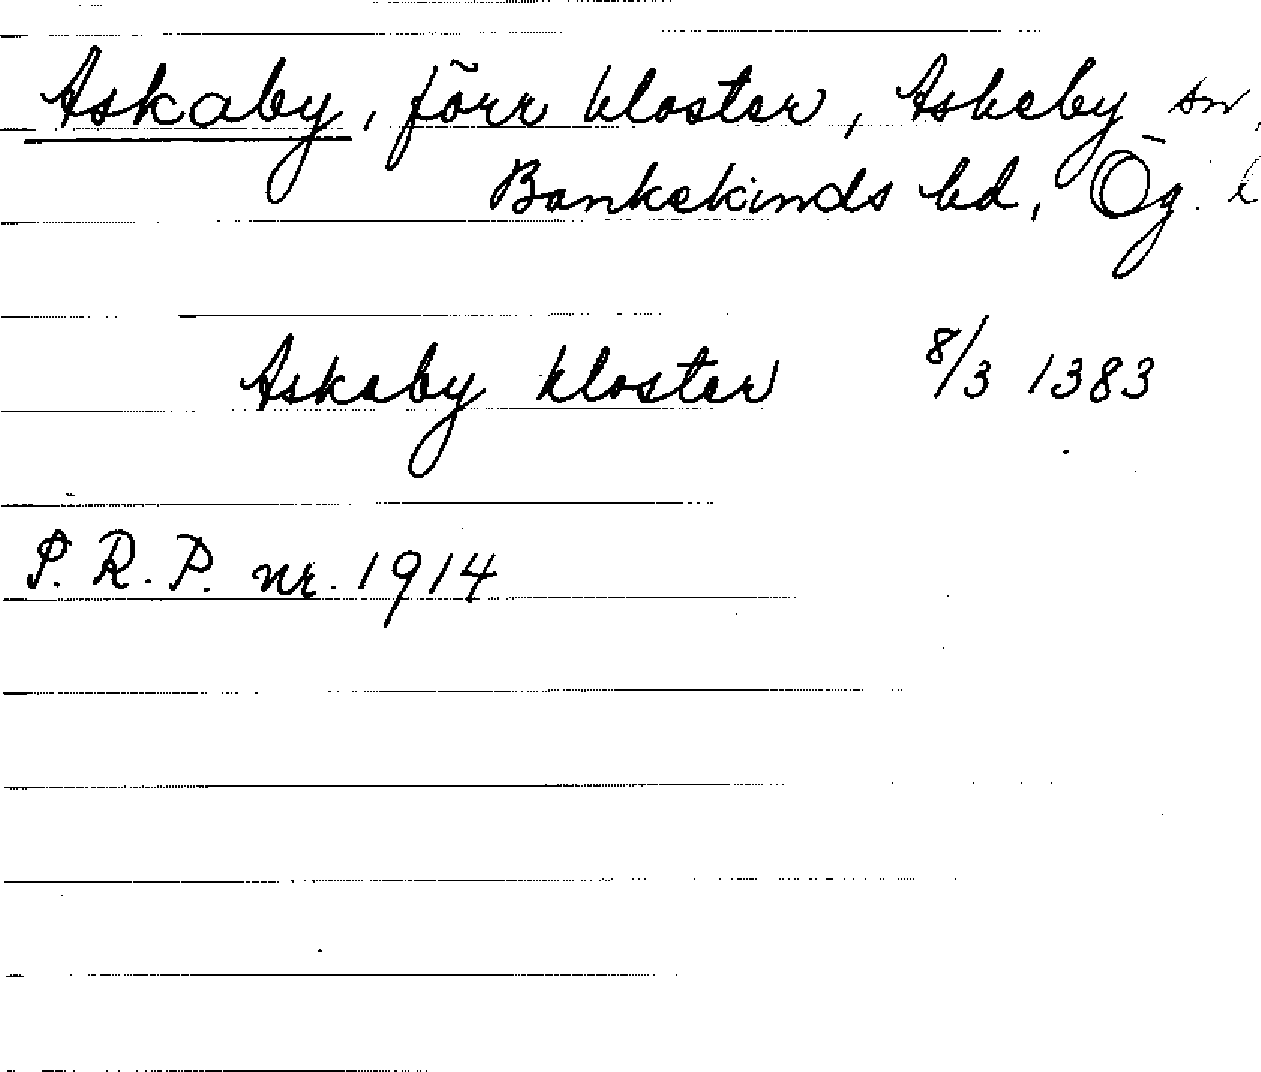 Askaby, förr kloster, Askeby sn,
Bankekinds hd, Ög. l
Askaby kloster 8/3 1383
P. R. P. nr. 1914